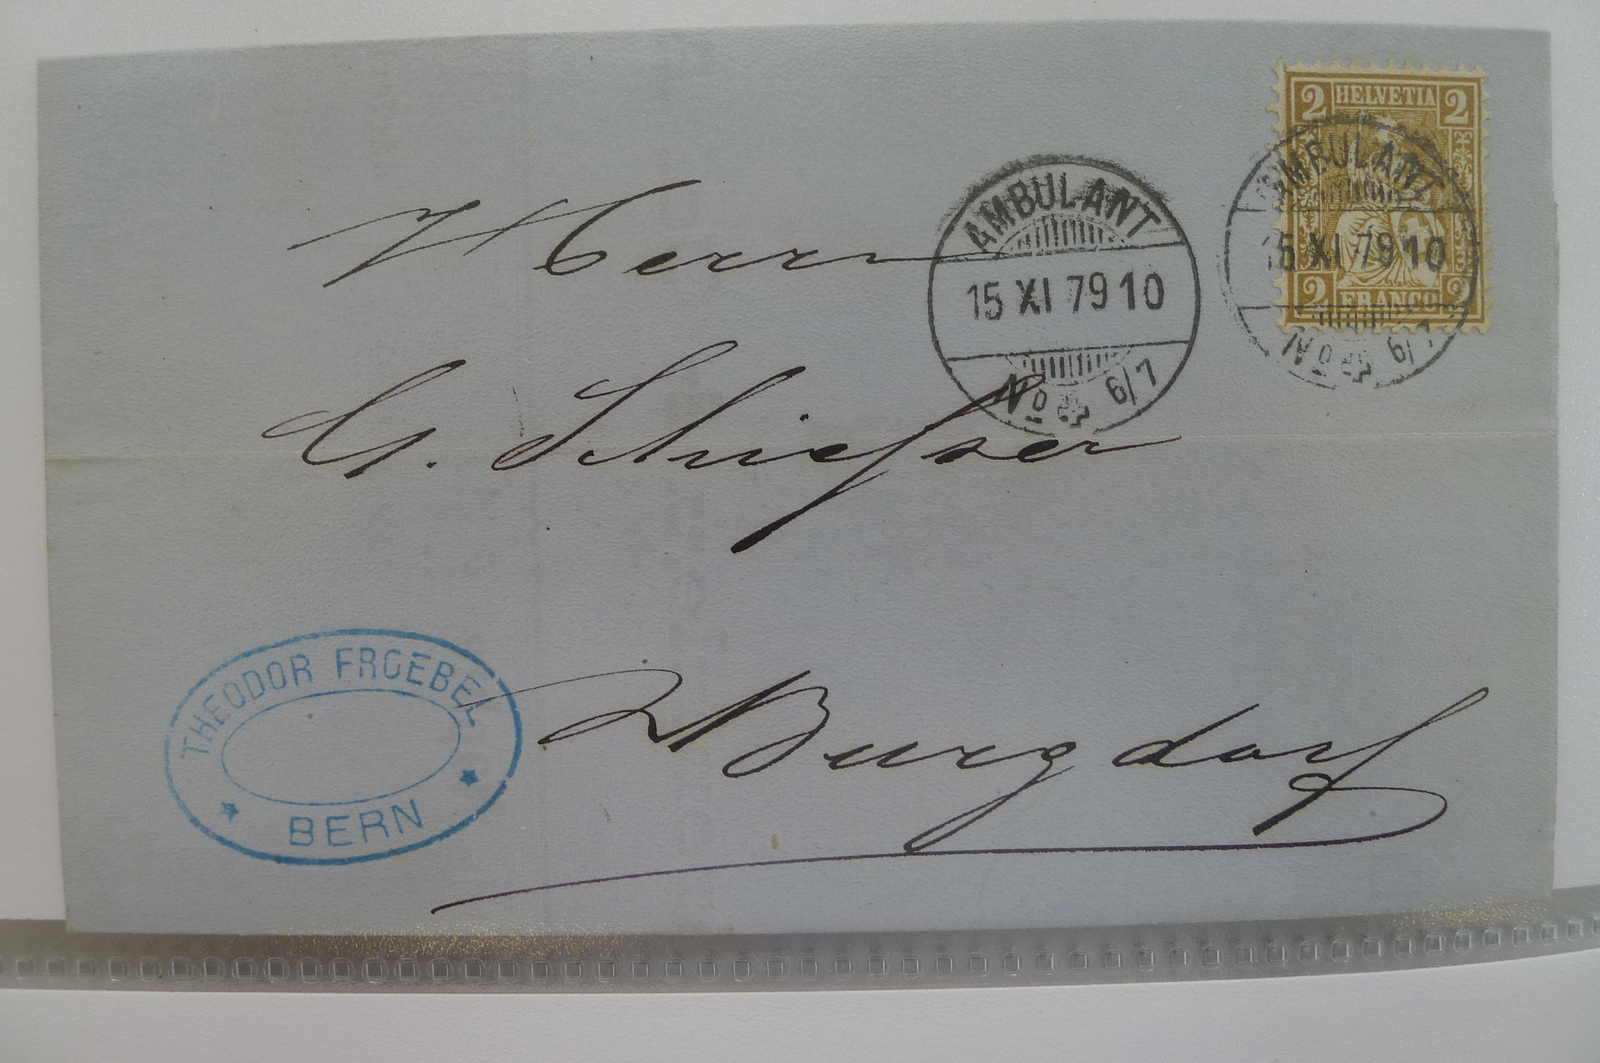 2 HELVETIA 2
2 FRANCO 2
AMBULANT
15 XI 79 10
No 4 6/7
AMBULANT
15 XI 79 10
No 4 6/7
Herrn
Burgdorf
THEODOR FROEBEL
BERN